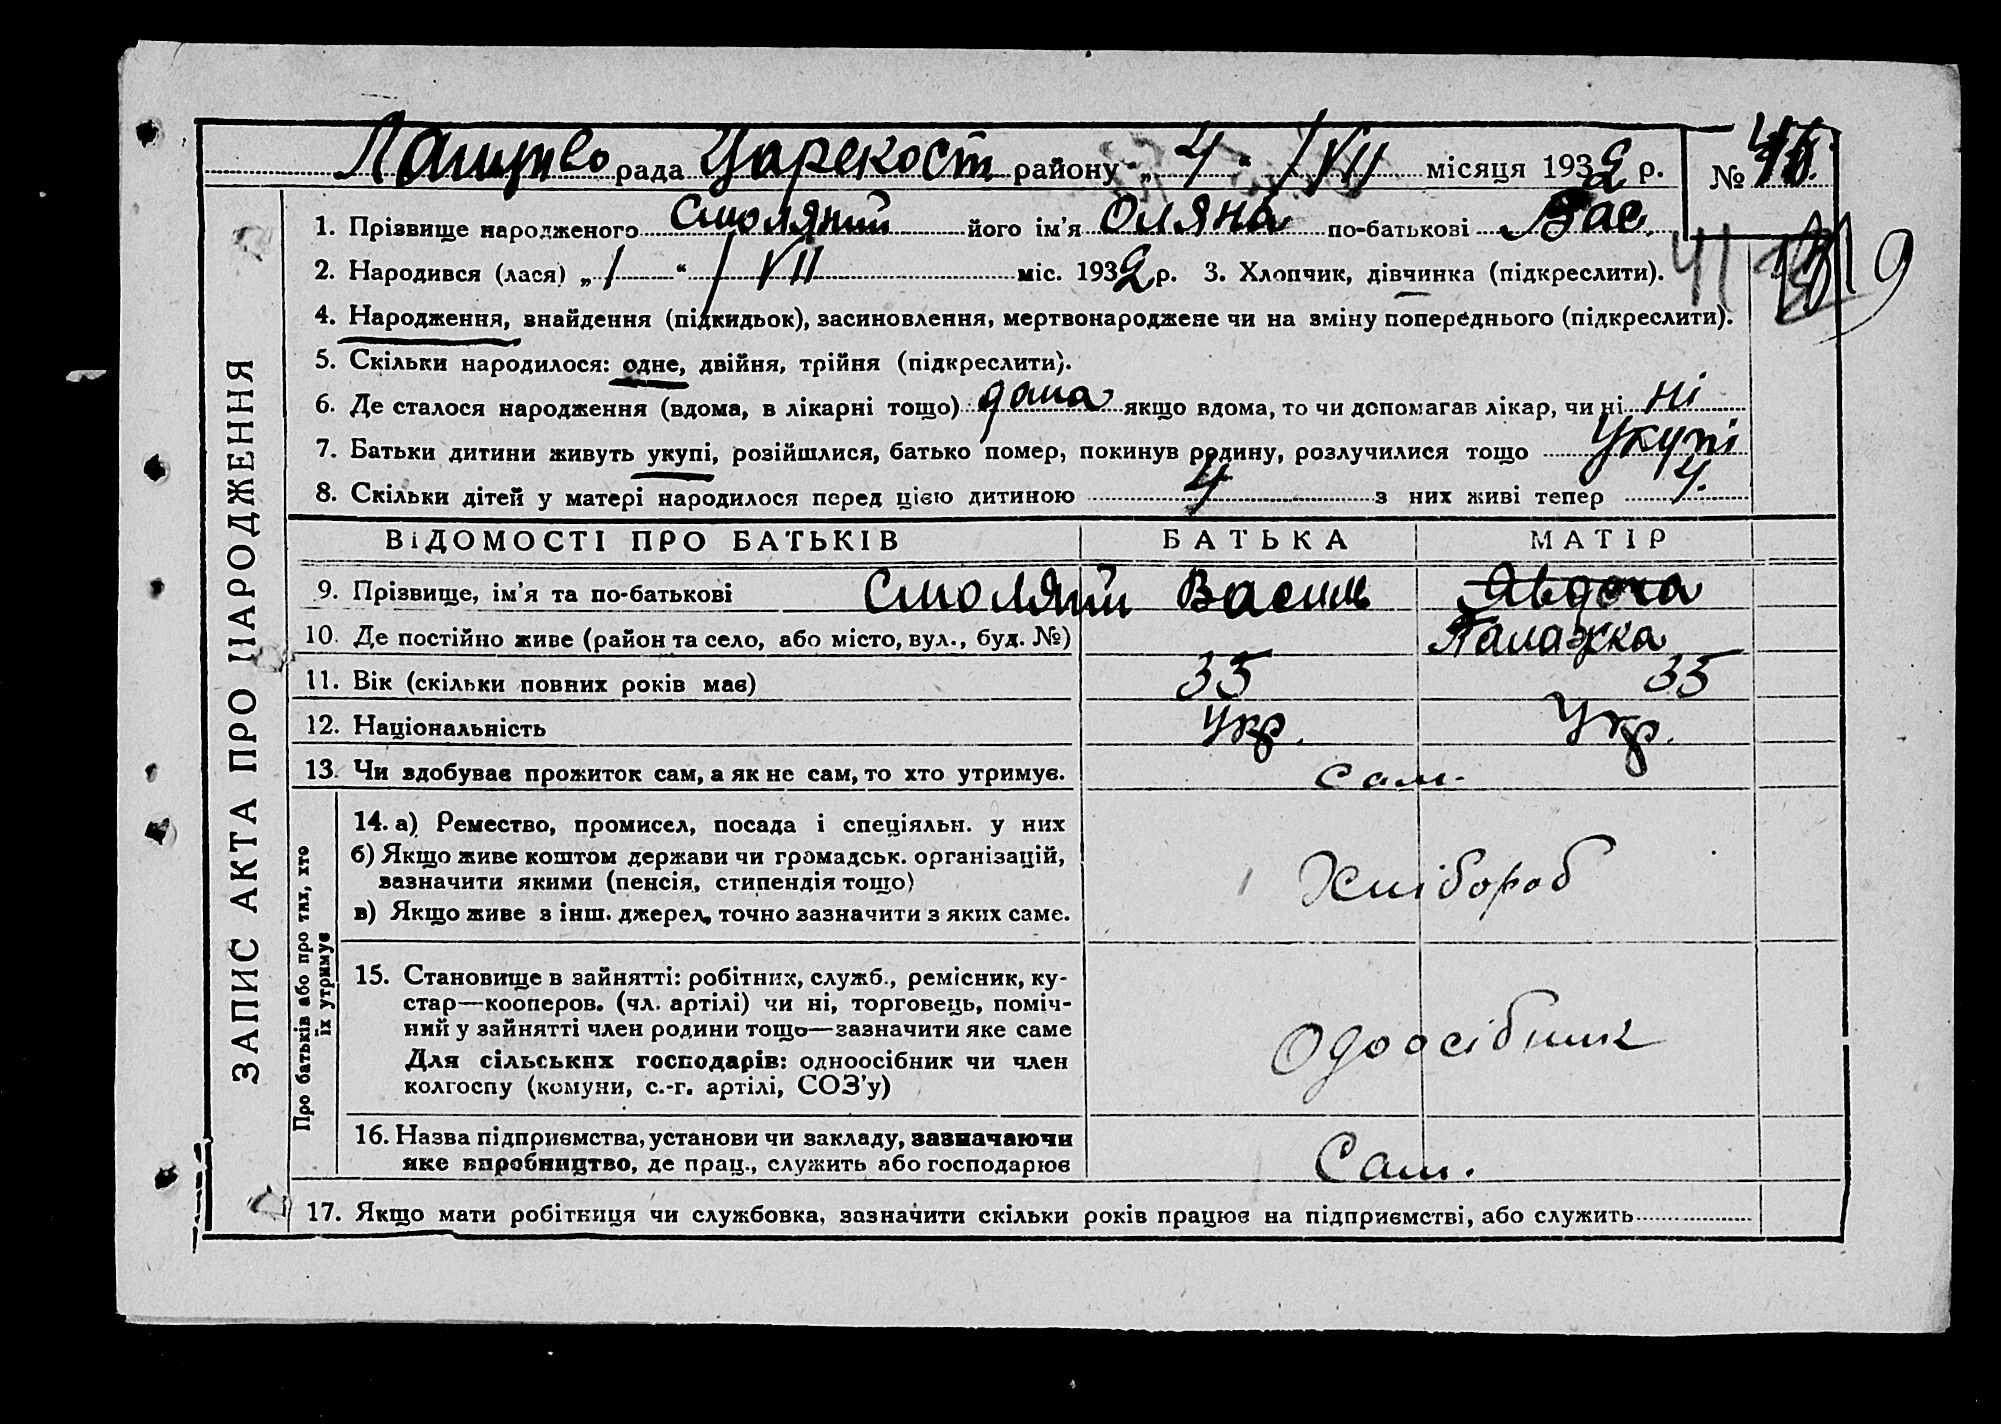 рада Царекост району „ 4 “ / VII місяця 1932 р. №
1. Прізвище народженого Смоляний його ім'я Оляна по-батькові Вас.
2. Народився (лася) „ 1 “ / VII міс. 1932 р. 3. Хлопчик, дівчинка (підкреслити).
41
19
4. Народження, знайдення (підкидьок), засиновлення, мертвонароджене чи на зміну попереднього (підкреслити).
5. Скільки народилося: одне, двійня, трійня (підкреслити).
6. Де сталося народження (вдома, в лікарні тощо) дома якщо вдома, то чи допомагав лікар, чи ні ні
7. Батьки дитини живуть укупі, розійшлися, батько помер, покинув родину, розлучилися тощо Укупі
8. Скільки дітей у матері народилося перед цією дитиною 4 з них живі тепер 4.
ВІДОМОСТІ ПРО БАТЬКІВ БАТЬКА МАТІР
9. Прізвище, ім'я та по-батькові Смоляний Василь Явдоха
10. Де постійно живе (район та село, або місто, вул., буд. №) Палажка
11. Вік (скільки повних років має) 35 35
12. Національність Укр. Укр.
13. Чи здобуває прожиток сам, а як не сам, то хто утримує. сам.
14. а) Ремество, промисел, посада і спеціяльн. у них
б) Якщо живе коштом держави чи громадськ. організацій,
зазначити якими (пенсія, стипендія тощо) Хлібороб
в) Якщо живе з інш. джерел, точно зазначити з яких саме.
15. Становище в зайнятті: робітник, служб., ремісник, ку-
стар—кооперов. (чл. артілі) чи ні, торговець, поміч-
ний у зайнятті член родини тощо—зазначити яке саме
Одоосібник
Для сільських господарів: одноосібник чи член
колгоспу (комуни, с.-г. артілі, СОЗ'у)
16. Назва підприємства, установи чи закладу, зазначаючи
яке виробництво, де прац., служить або господарює Сам.
17. Якщо мати робітниця чи службовка, зазначити скільки років працює на підприємстві, або служить
ЗАПИС АКТА ПРО НАРОДЖЕННЯ
Про батьків або про тих, хто
їх утримує